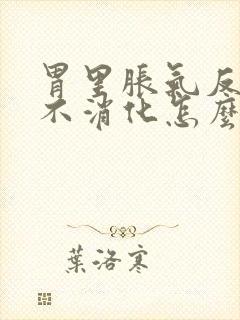 胃里脹氣反
不消化怎麼
葉洛寒